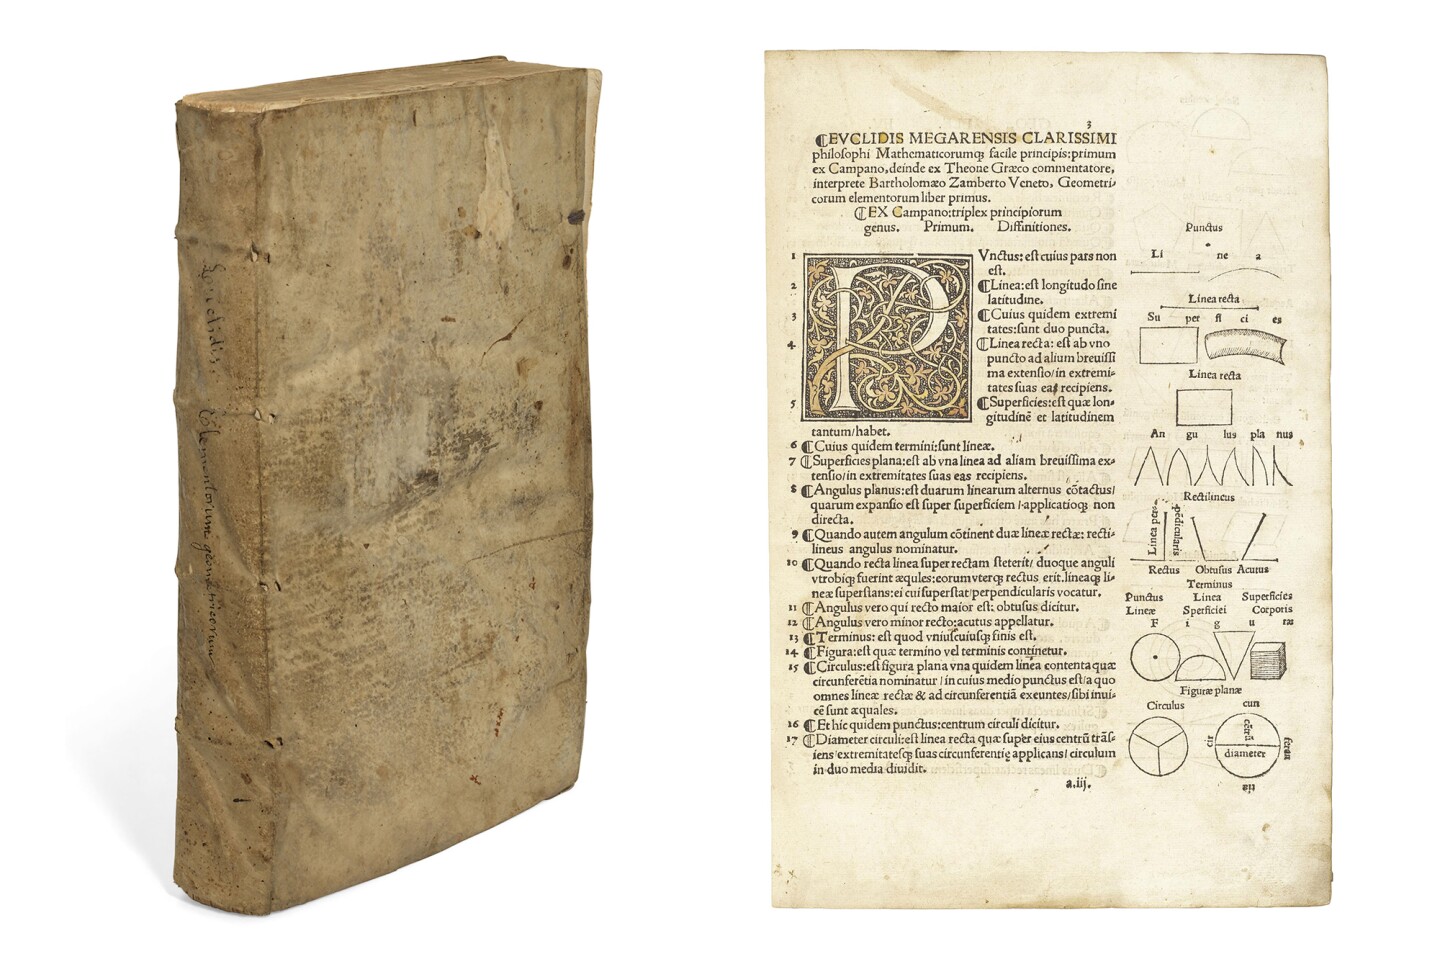 Euclidis Elementorum geometricorum
3
⸿EVCLIDIS MEGARENSIS CLARISSIMI
philosophi Mathematicorumqꝫ facile principis:primum
ex Campano,deinde ex Theone Græco commentatore,
interprete Bartholomæo Zamberto Veneto, Geometri-
corum elementorum liber primus.
⸿EX Campano:triplex principiorum
genus. Primum. Diffinitiones.
1 PVnctus: est cuius pars non
est.
2 ⸿Linea:est longitudo sine
latitudine.
3 ⸿Cuius quidem extremi
tates:sunt duo puncta.
4 ⸿Linea recta: est ab vno
puncto ad alium breuissi
ma extensio/in extremi-
tates suas eas recipiens.
5 ⸿Superficies:est quæ lon-
gitudinē et latitudinem
tantum/habet.
6 ⸿Cuius quidem termini:sunt lineæ.
7 ⸿Superficies plana:est ab vna linea ad aliam breuissima ex-
tensio/in extremitates suas eas recipiens.
8 ⸿Angulus planus:est duarum linearum alternus cōtactus/
quarum expansio est super superficiem/applicatioqꝫ non
directa.
9 ⸿Quando autem angulum cōtinent duæ lineæ rectæ: recti-
lineus angulus nominatur.
10 ⸿Quando recta linea super rectam steterit/ duoque anguli
vtrobiqꝫ fuerint æqules:eorum vterqꝫ rectus erit.lineaqꝫ li-
neæ superstans:ei cui superstat/perpendicularis vocatur.
11 ⸿Angulus vero qui recto maior est: obtusus dicitur.
12 ⸿Angulus vero minor recto:acutus appellatur.
13 ⸿Terminus: est quod vniuscuiusqꝫ finis est.
14 ⸿Figura:est quæ termino vel terminis continetur.
15 ⸿Circulus:est figura plana vna quidem linea contenta quæ
circunferētia nominatur / in cuius medio punctus est/a quo
omnes lineæ rectæ & ad circunferentiā exeuntes/sibi inui-
cē sunt æquales.
16 ⸿Et hic quidem punctus:centrum circuli dicitur.
17 ⸿Diameter circuli:est linea recta quæ super eius centrū trās-
iens extremitatesqꝫ suas circunferentię applicans/ circulum
in duo media diuidit.
a.iij.
Punctus
Li ne a
Linea recta
Su per fi ci es
Linea recta
An gu lus pla nus
Rectilineus
Linea per-
pēdicularis
Rectus Obtusus Acutus
Terminus
Punctus Linea Superficies
Lineæ Sperficiei Corporis
F i g u ræ
Figuræ planæ
Circulus cun
cir cētrū feren
diameter
tia